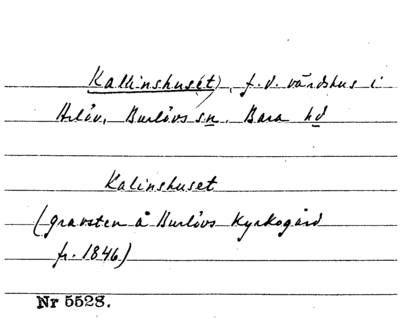 Kallinshuset), f.d. värdshus i
Arlöv, Burlövs sn. Bara hd
Kalinshuset
(gravsten å Burlövs Kyrkogård
fr. 1846)
Nr 5528.